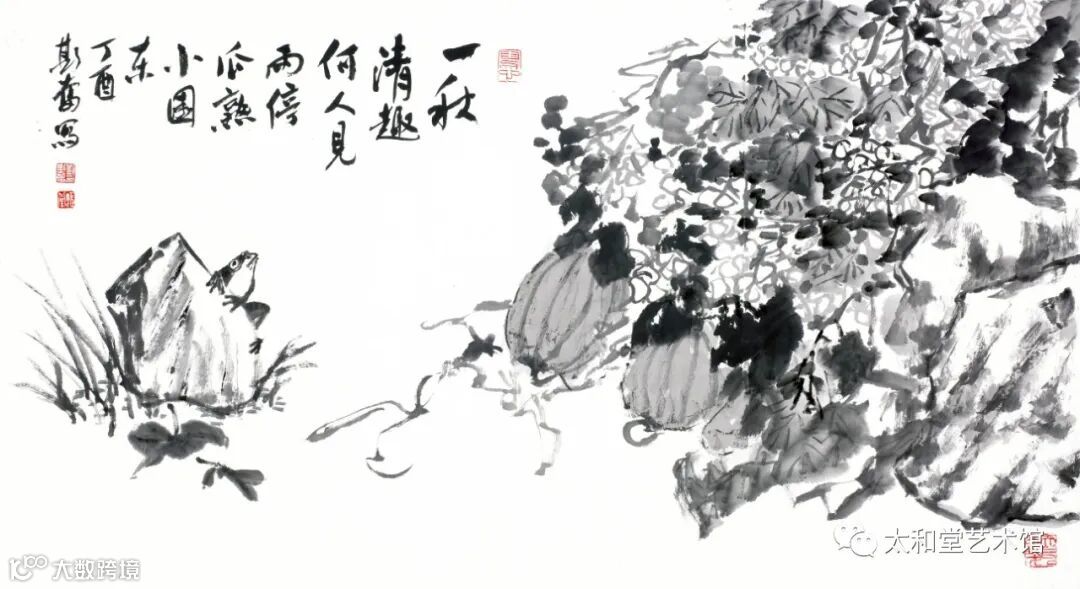 一秋
清趣
何人見
雨停
瓜熟
小園
東
丁酉
斯奮寫
太和堂艺术馆
大数跨境